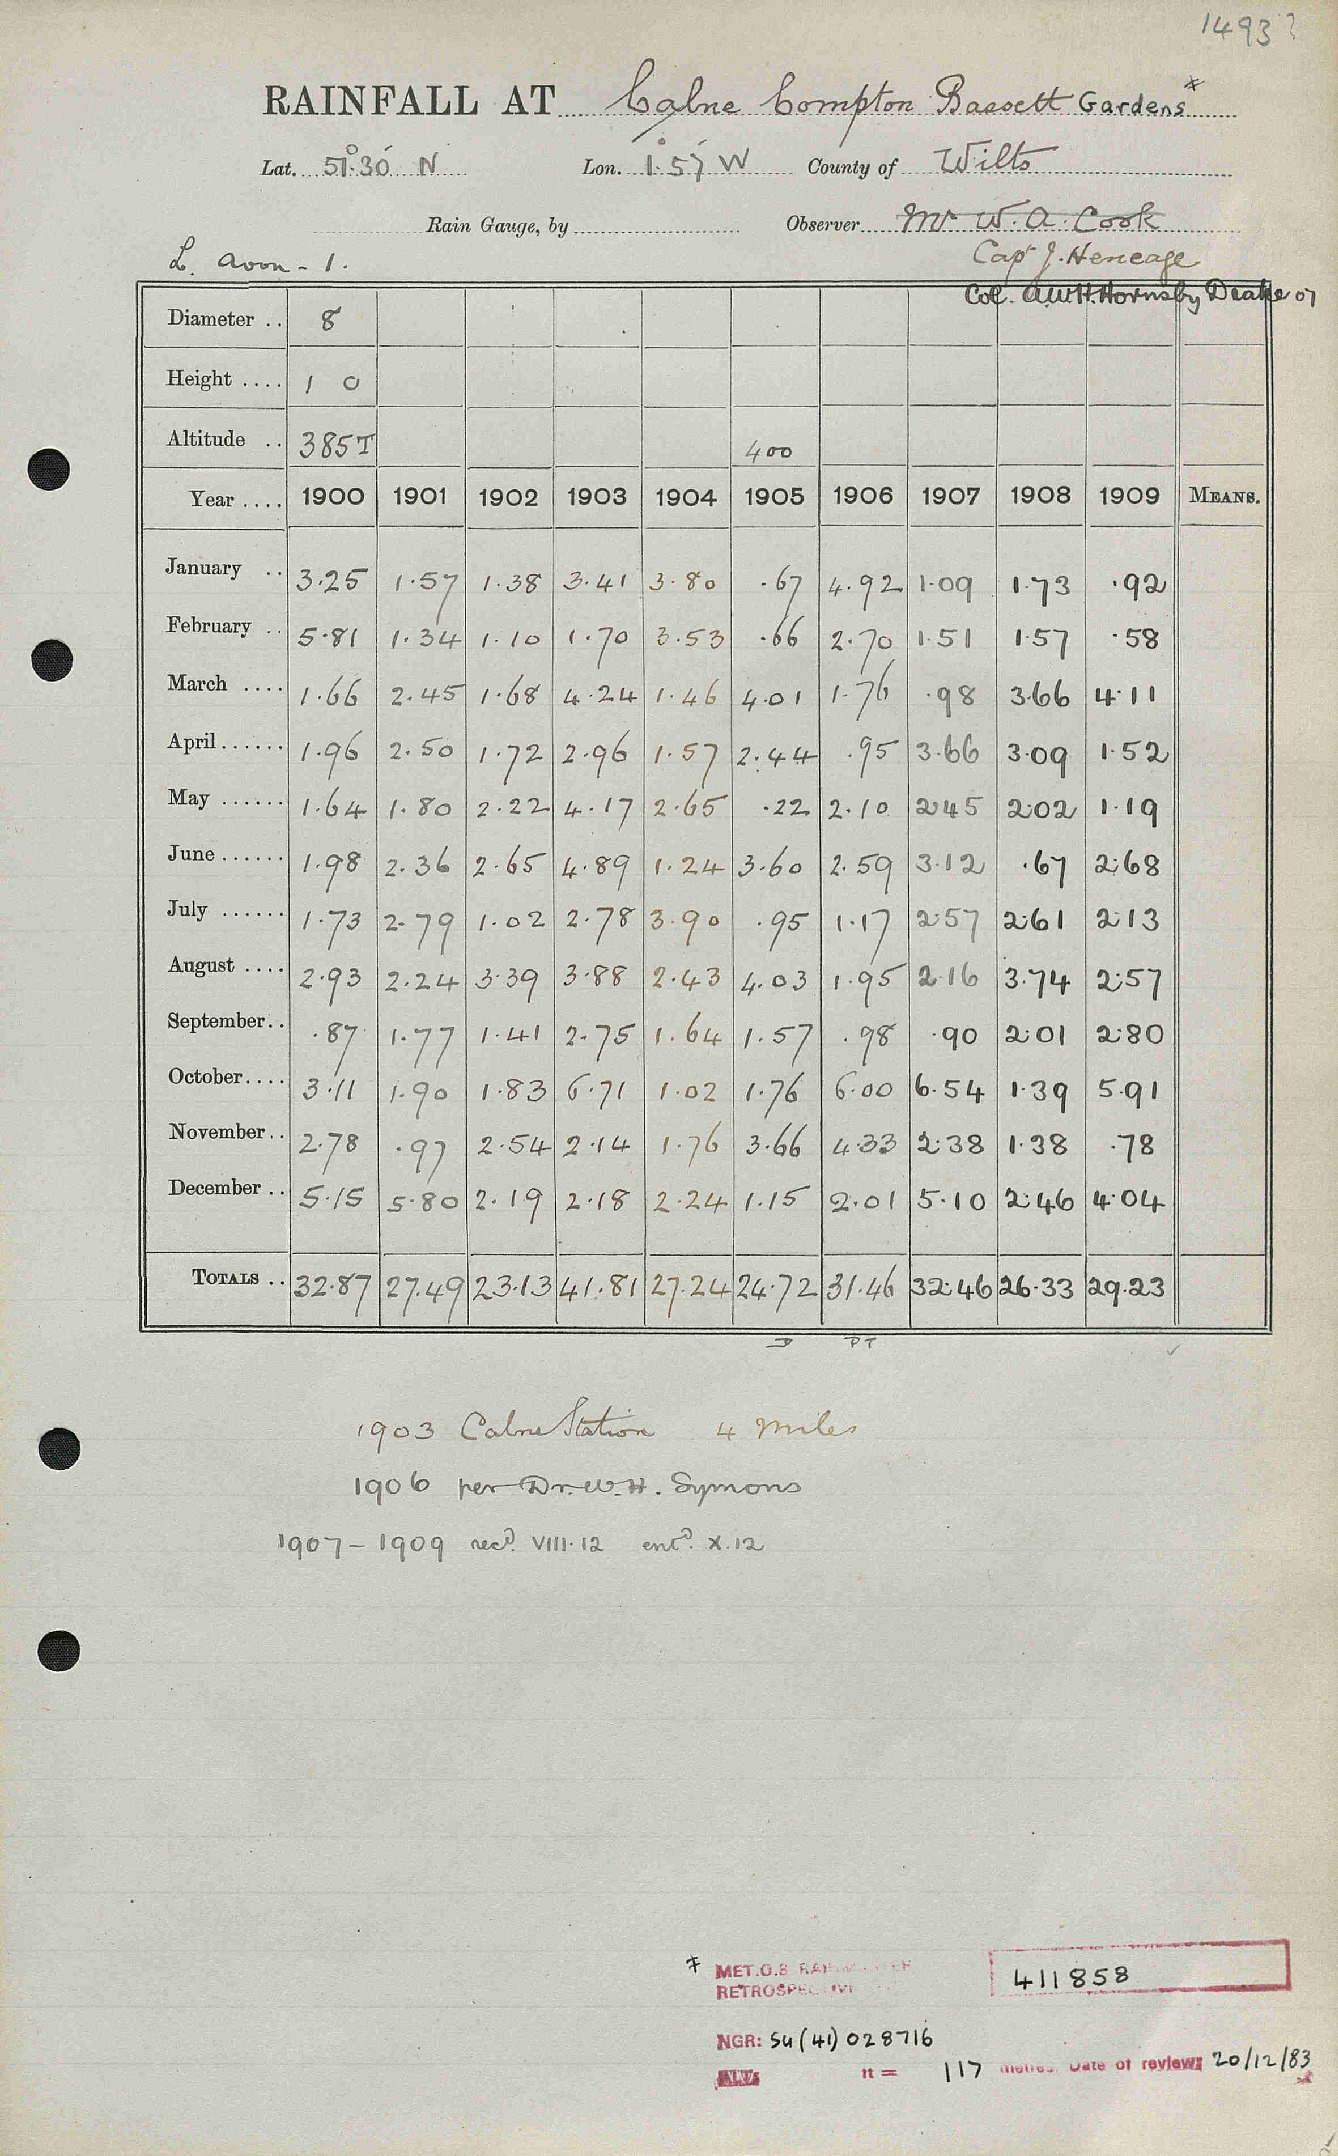 1493?
RAINFALL AT Calne Compton Bassett Gardens *
Lat. 51°.30' N Lon. 1°.57' W County of Wilts
Rain Gauge, by Observer Mr W. A. Cook
L. Avon - 1. Capt J. Heneage
Col. A.W.H. Hornsby Drake 07
Diameter .. 8
Height .... 1 0
Altitude .. 385T 400
Year .... 1900 1901 1902 1903 1904 1905 1906 1907 1908 1909 MEANS.
January .. 3.25 1.57 1.38 3.41 3.80 .67 4.92 1.09 1.73 .92
February .. 5.81 1.34 1.10 1.70 3.53 .66 2.70 1.51 1.57 .58
March .... 1.66 2.45 1.68 4.24 1.46 4.01 1.76 .98 3.66 4.11
April ...... 1.96 2.50 1.72 2.96 1.57 2.44 .95 3.66 3.09 1.52
May ...... 1.64 1.80 2.22 4.17 2.65 .22 2.10 2.45 2.02 1.19
June ...... 1.98 2.36 2.65 4.89 1.24 3.60 2.59 3.12 .67 2.68
July ...... 1.73 2.79 1.02 2.78 3.90 .95 1.17 2.57 2.61 2.13
August .... 2.93 2.24 3.39 3.88 2.43 4.03 1.95 2.16 3.74 2.57
September .. .87 1.77 1.41 2.75 1.64 1.57 .98 .90 2.01 2.80
October .... 3.11 1.90 1.83 6.71 1.02 1.76 6.00 6.54 1.39 5.91
November .. 2.78 .97 2.54 2.14 1.76 3.66 4.33 2.38 1.38 .78
December .. 5.15 5.80 2.19 2.18 2.24 1.15 2.01 5.10 2.46 4.04
TOTALS .. 32.87 27.49 23.13 41.81 27.24 24.72 31.46 32.46 26.33 29.23
D PT
1903 Calne Station 4 miles
1906 per Dr. W. H. Symons
1907 – 1909 recd. VIII.12 entd. X.12
* MET.O.8
411858
NGR: SU (41) 028716
117 metres Date of review: 20/12/83